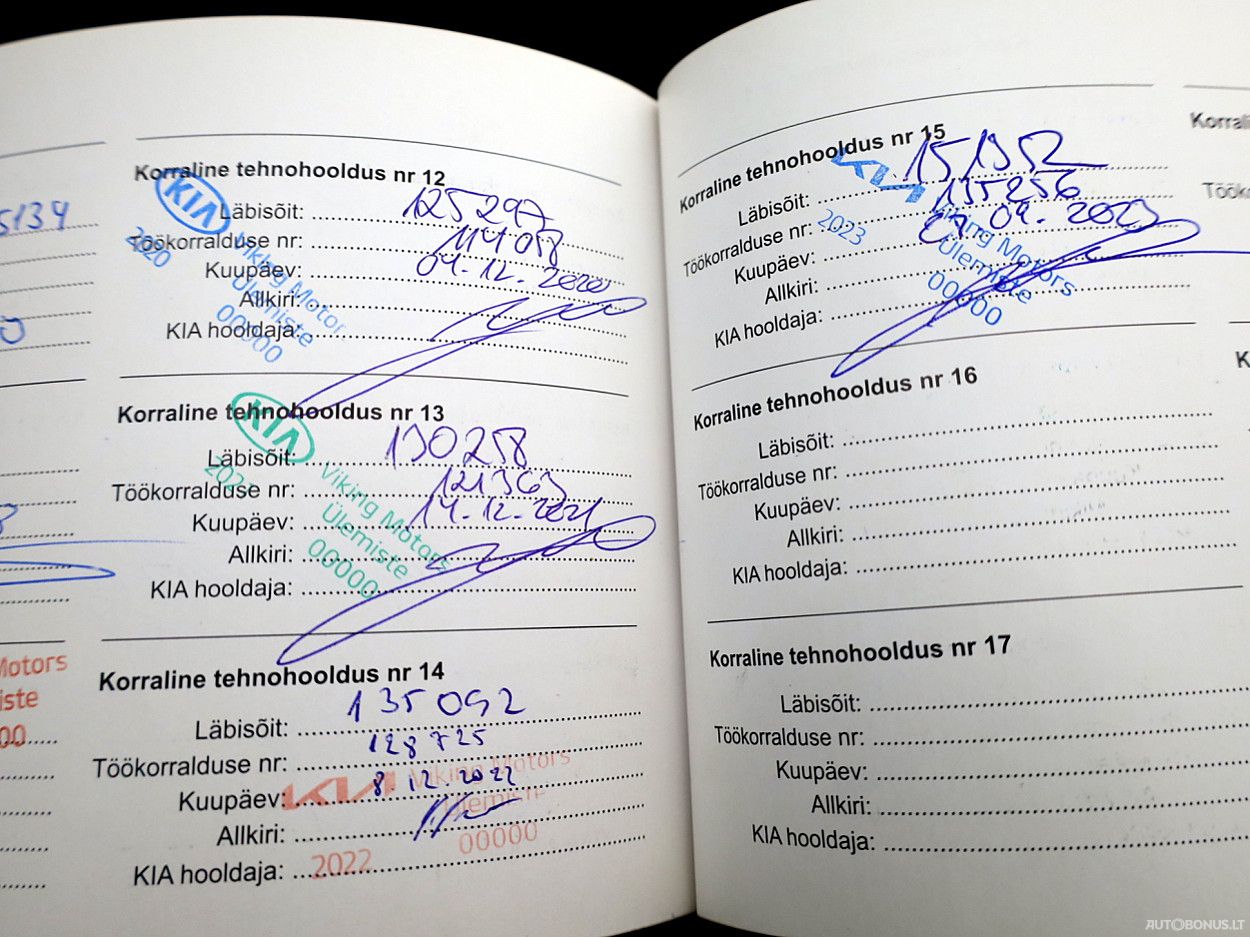 5134
Korraline tehnohooldus nr 12
KIA
Läbisõit: 125297
Töökorralduse nr: 114058
2020
Kuupäev: 04.12.2020
Viking Motor
Allkiri:
Ülemiste
KIA hooldaja:
00000
Korraline tehnohooldus nr 13
KIA
Läbisõit: 130258
Töökorralduse nr: 121363
Kuupäev: 14.12.2021
Viking Motors
Allkiri:
Ülemiste
KIA hooldaja:
00000
Motors
iste
00
Korraline tehnohooldus nr 14
Läbisõit: 135092
Töökorralduse nr: 128725
Kuupäev: 8 12.2022
KIA Viking Motors
Allkiri:
Ülemiste
KIA hooldaja:
2022 00000
Korraline tehnohooldus nr 15
KIA
Läbisõit:
Töökorralduse nr: 135256
2023
Kuupäev:
Viking Motors
Allkiri:
Ülemiste
KIA hooldaja:
00000
Korraline tehnohooldus nr 16
Läbisõit:
Töökorralduse nr:
Kuupäev:
Allkiri:
KIA hooldaja:
Korraline tehnohooldus nr 17
Läbisõit:
Töökorralduse nr:
Kuupäev:
Allkiri:
KIA hooldaja:
Korrali
Töök
K
AUTOBONUS.LT